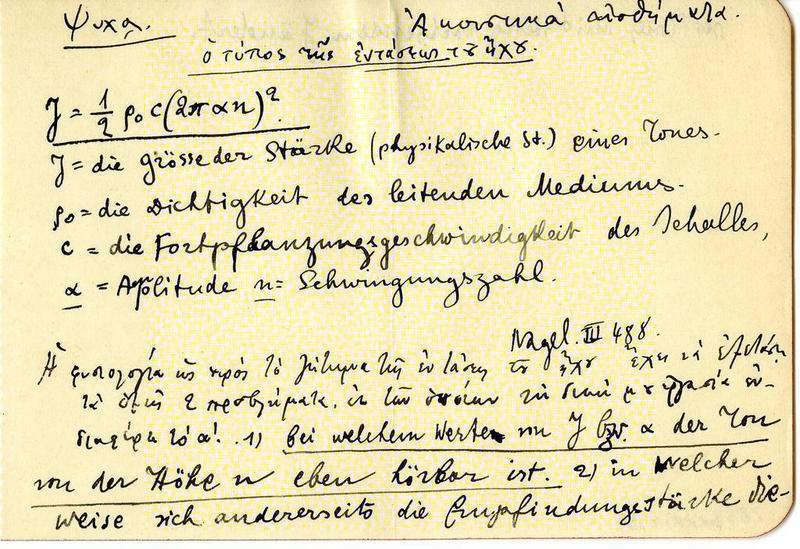 Ψυχοφ. Ἀκουστικὰ
ὁ τύπος τῆς ἐντάσεως τοῦ ἤχου.
J = 1/2 ρ₀ c (2π α n)²
J = die Grösse der Stärke (physikalische St.) eines Tones.
ρ₀ = die Dichtigkeit des leitenden Mediums.
c = die Fortpflanzungsgeschwindigkeit des Schalles,
α = Amplitude n = Schwingungszahl.
Nagel. III 488.
Ἡ φυσιολογία ὡς πρὸς τὸ ζήτημα τῆς ἐντάσεως τοῦ ἤχου ἔχει νὰ ἐξετάσῃ
2 προβλήματα, ἐκ τῶν ὁποίων
τὸ α'. 1) bei welchem Werte von J bzw. α der Ton
von der Höhe n eben hörbar ist. 2) in welcher
weise sich andererseits die Empfindungsstärke die-